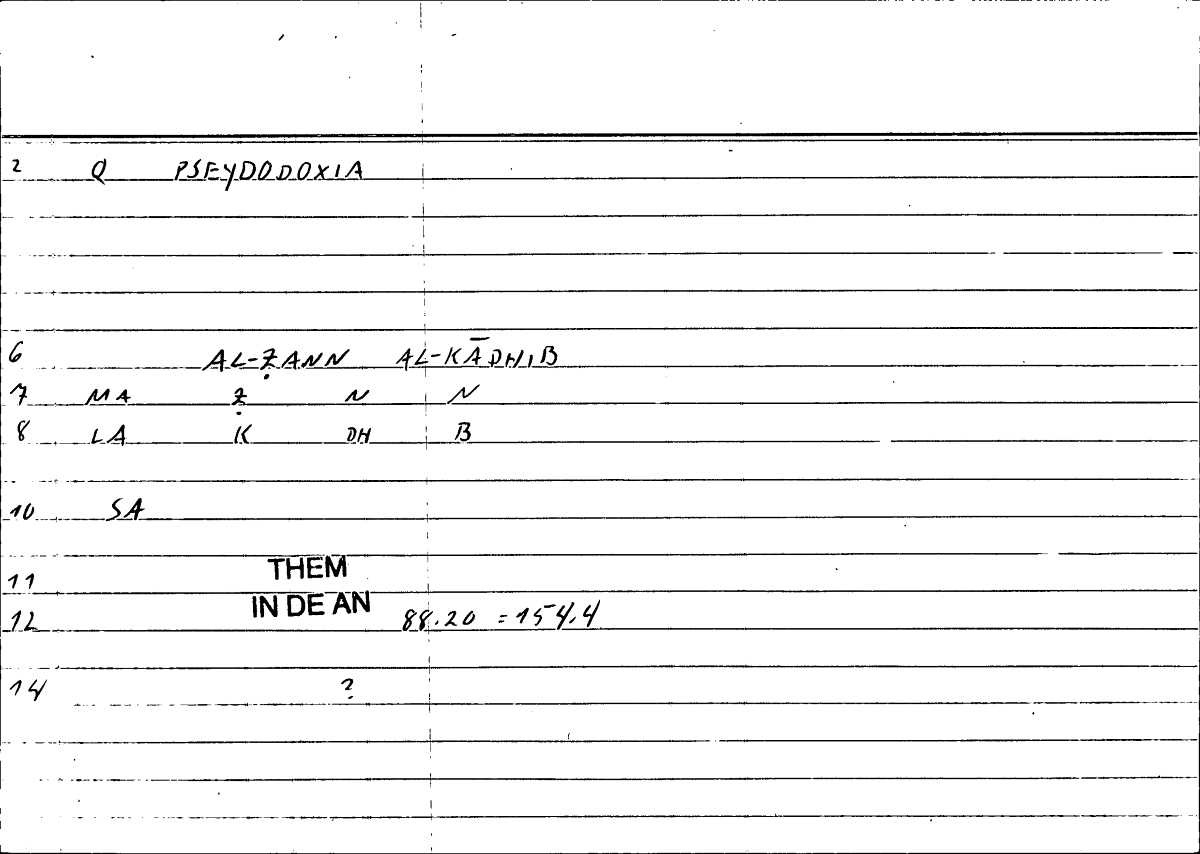 2 Q PSEYDODOXIA
6 AL-ẒANN AL-KĀDHIB
7 MA Ẓ N N
8 LA K DH B
10 SA
11 THEM
12 IN DE AN 88.20 = 154.4
14 ?